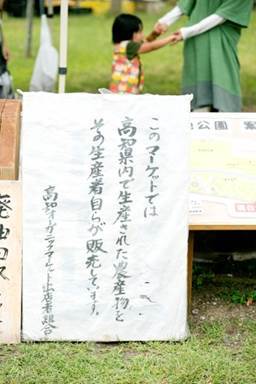 このマーケットでは
高知県内で生産された農産物を
その生産者自らが販売しています。
高知オーガニックマーケット出店者組合
公園 案
廃油回